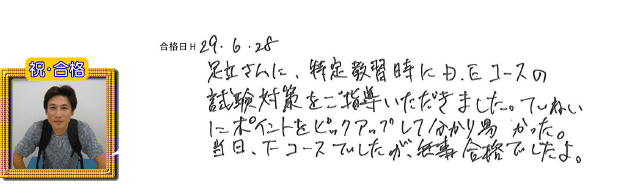 祝・合格
合格日H 29.6.28
足立さんに、特定教習時にD.Eコースの
試験対策をご指導いただきました。ていねい
にポイントをピックアップして分かり易かった。
当日、Fコースでしたが、無事合格でしたよ。